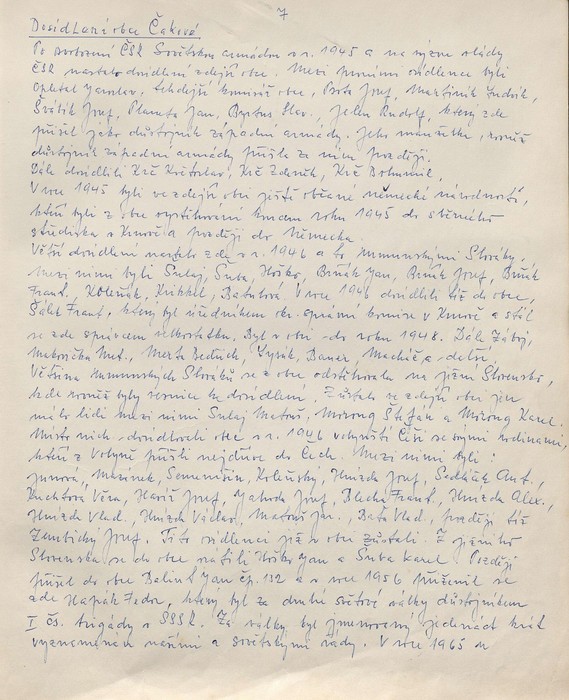 7
Dosídlení obce Čaková
Po osvobození ČSR Sovětskou armádou v r. 1945 a na výzvu vlády
ČSR nastalo dosídlení zdejší obce. Mezi prvními osídlence byli
Opletal Jaroslav, tehdejší komisař obce, Josef, Martiník Ludvík,
Švátik Josef, Planeta Jan, Slav., Jelen Rudolf, který zde
přišel jako důstojník západní armády. Jeho manželka, rovněž
důstojník západní armády přišla za ním později.
Dále dosídlili Kvě Květoslav, Kvě Zdeněk, Kvě Bohumil.
V roce 1945 byli ve zdejší obci ještě občané německé národnosti,
kteří byli z obce vystěhováni koncem roku 1945 do sběrného
střediska v Krnově a později do Německa.
Větší dosídlení nastalo zde v r. 1946 a to rumunskými Slováky,
mezi nimi byli Sulaj, Šuba, Hrško, Brňák Jan, Brňák Josef, Brňák
Frant., Koleňák, Krikkel, Batulová. V roce 1946 dosídlil též do obce,
Šálek Frant., který byl úředníkem okr. správní komise v Krnově a stal
se zde správcem velkostatku. Byl v obci do roku 1948. Dále Záboj,
Makovička Met., Merta Bedřich, Lysák, Bauer, Machič a další.
Většina rumunských Slováků se z obce odstěhovala na jižní Slovensko,
kde rovněž byly vesnice ke dosídlení. Zůstalo ve zdejší obci jen
málo lidí mezi nimi Sulaj Matouš, Mizong Štefán a Mizong Karel.
Místo nich dosídlovali obec v r. 1946 volyňští Češi se svými rodinami,
kteří z Volyně přišli nejdříve do Čech. Mezi nimi byli:
Junová, Mazurek, Semenišin, Koleňský, Hnízda Josef, Sedláček Ant.,
Kuchtová Věra, Havič Josef, Jahoda Josef, Blecha Frant., Hnízda Alex.,
Hnízda Vlad., Hnízda Václav, Matouš Jar., Bata Vlad., později též
Zemtický Josef. Tito osídlenci již v obci zůstali. Z jižního
Slovenska se do obce vrátili Hrško Jan a Šuba Karel. Později
přišel do obce Balint Jan čp. 132 a v roce 1956 přiženil se
zde Hapák Fedor, který byl za druhé světové války důstojníkem
I čs. brigády v SSSR. Za války byl jmenovaný jedenáct krát
vyznamenán našimi a sovětskými řády. V roce 1965 se